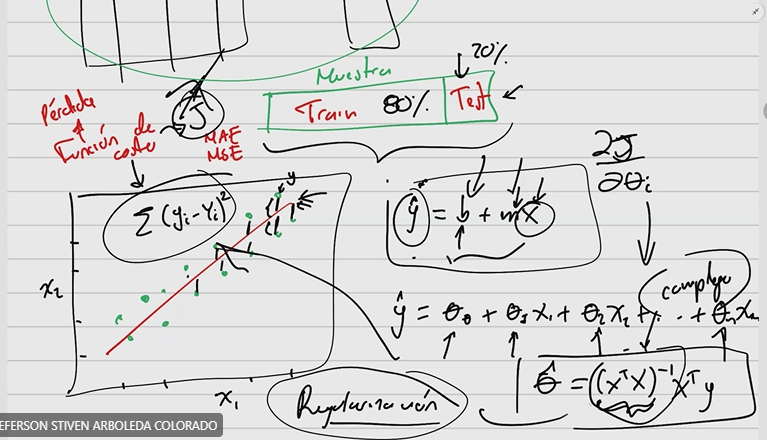 20%
Muestra
Train 80% Test
Pérdida
Función de costo
J
MAE
MSE
∂J
∂θi
y
Σ(yi-Yi)²
ŷ = b + mx
x2
x1
complejo
ŷ = θ0 + θ1x1 + θ2x2 + ... + θnxn
θ̂ = (xᵀx)⁻¹xᵀy
Regularización
EFERSON STIVEN ARBOLEDA COLORADO